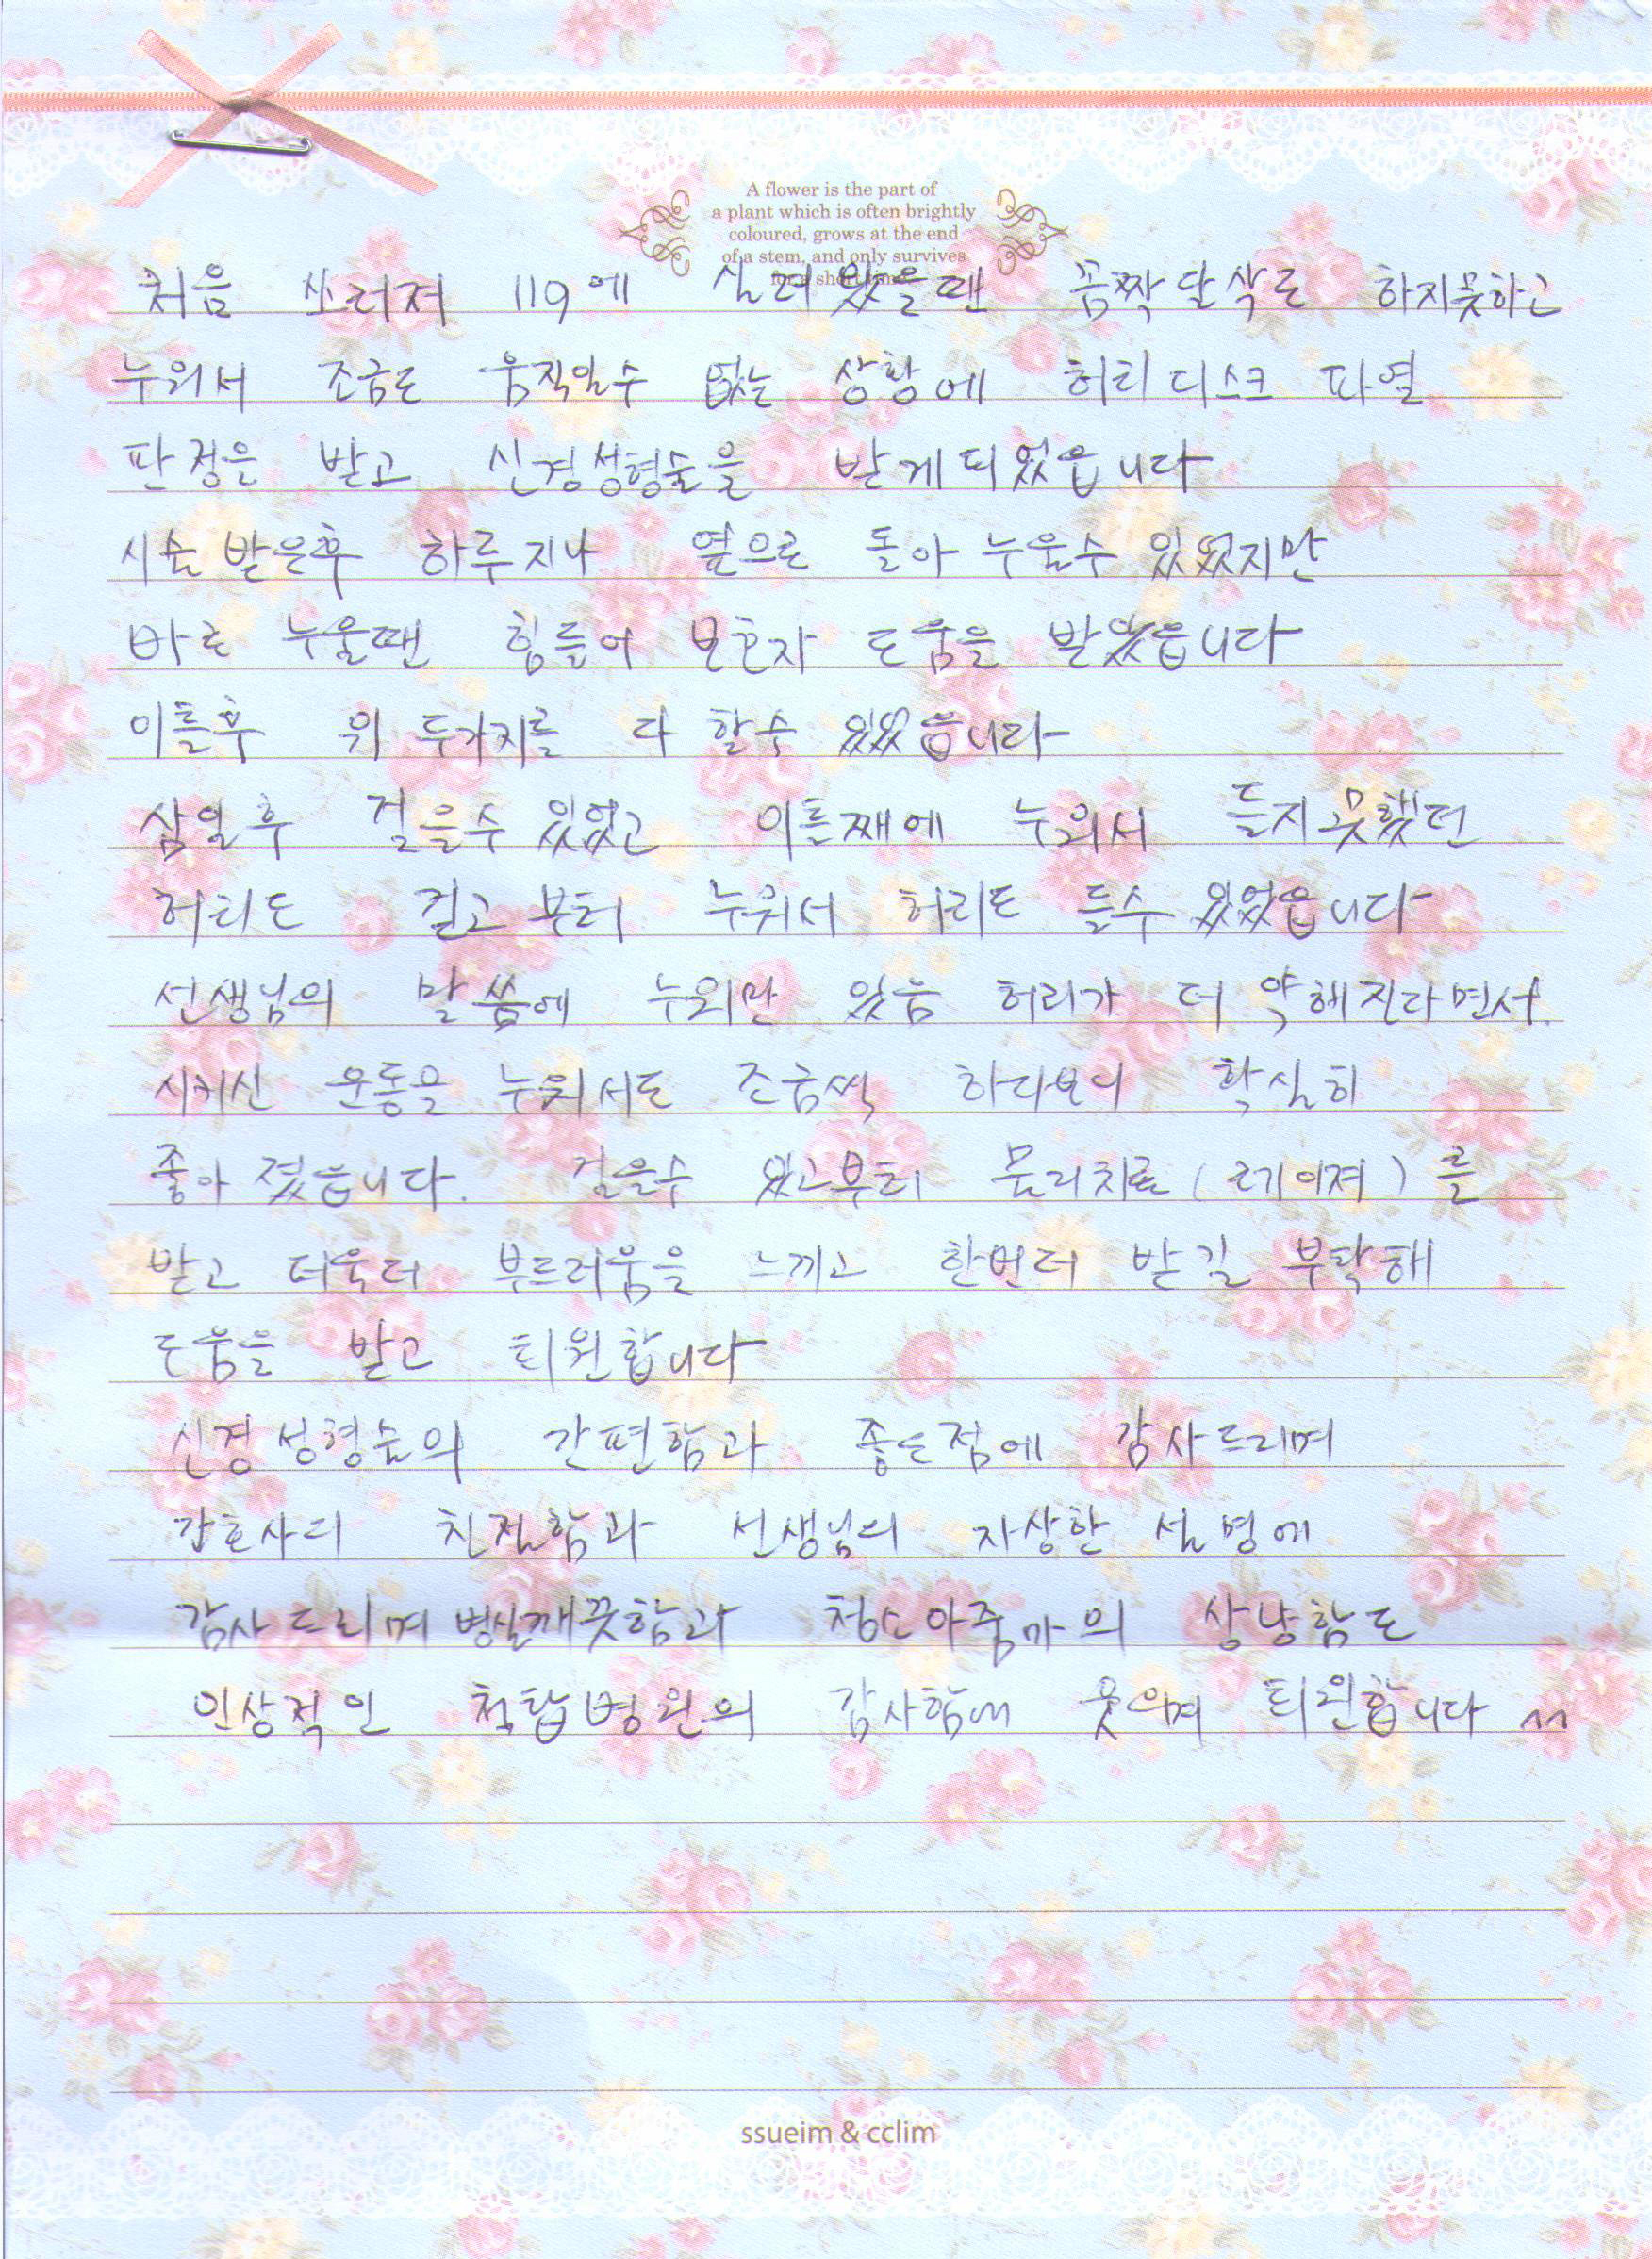 A flower is the part of
a plant which is often brightly
coloured, grows at the end
of a stem, and only survives
처음 쓰러져 119에 실려 왔을땐 꼼짝달싹도 하지못하고
누워서 조금도 움직일수 없는 상황에 허리디스크 파열
판정을 받고 신경성형술을 받게되었읍니다
시술 받은후 하루지나 옆으로 돌아 누울수 있었지만
바로 누울땐 힘들어 보호자 도움을 받았읍니다
이틀후 위 두가지를 다 할수 있었읍니다
삼일후 걸을수 있었고 이틀째에 누워서 들지못했던
허리도 걷고부터 누워서 허리도 들수 있었읍니다
선생님의 말씀에 누워만 있음 허리가 더 약해진다면서.
시키신 운동을 누워서도 조금씩 하다보니 확실히
좋아 졌읍니다. 걸을수 있고부터 물리치료 (레이져) 를
받고 더욱더 부드러움을 느끼고 한번더 받길 부탁해
도움을 받고 퇴원합니다
신경성형술의 간편함과 좋은점에 감사드리며
간호사의 친절함과 선생님의 자상한 설명에
감사드리며 병실깨끗함과 청소아줌마의 상냥함도
인상적인 척탑병원의 감사함에 웃으며 퇴원합니다 ^^
ssueim & cclim